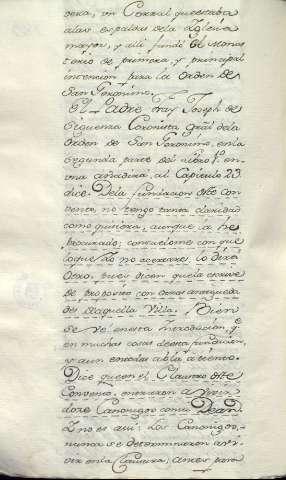 dera, un Corral que estaba
a las espaldas de la Iglesia
mayor, y alli fundó el monas
terio de primera, y principal
intencion para la orden de
San Geronimo.
El Padre Fray Joseph de
Siguenza Coronista gral de la
Orden de San Geronimo, en la
segunda parte del libro
una añadira al Capitulo 23
dice. De la fundacion de este con
bento, no tengo tanta claridad
como quisiera, aunque la he
procurado; consuelome con que
lo que Yo no acertare, lo dirá
otro, pues dicen que la escrive
de proposito con otras antigueda
des de aquella Villa. Bien
se vé en esta introducion, que
en muchas cosas de esta fundacion,
y aun en todas abla a tiento.
Dice que en el Claustro de este
Convento, entraron a vivir
doce Canonigos con su Dean.
Y no es asi: Los Canonigos,
nunca se determinaron a vi
vir en la Clausura, antes para